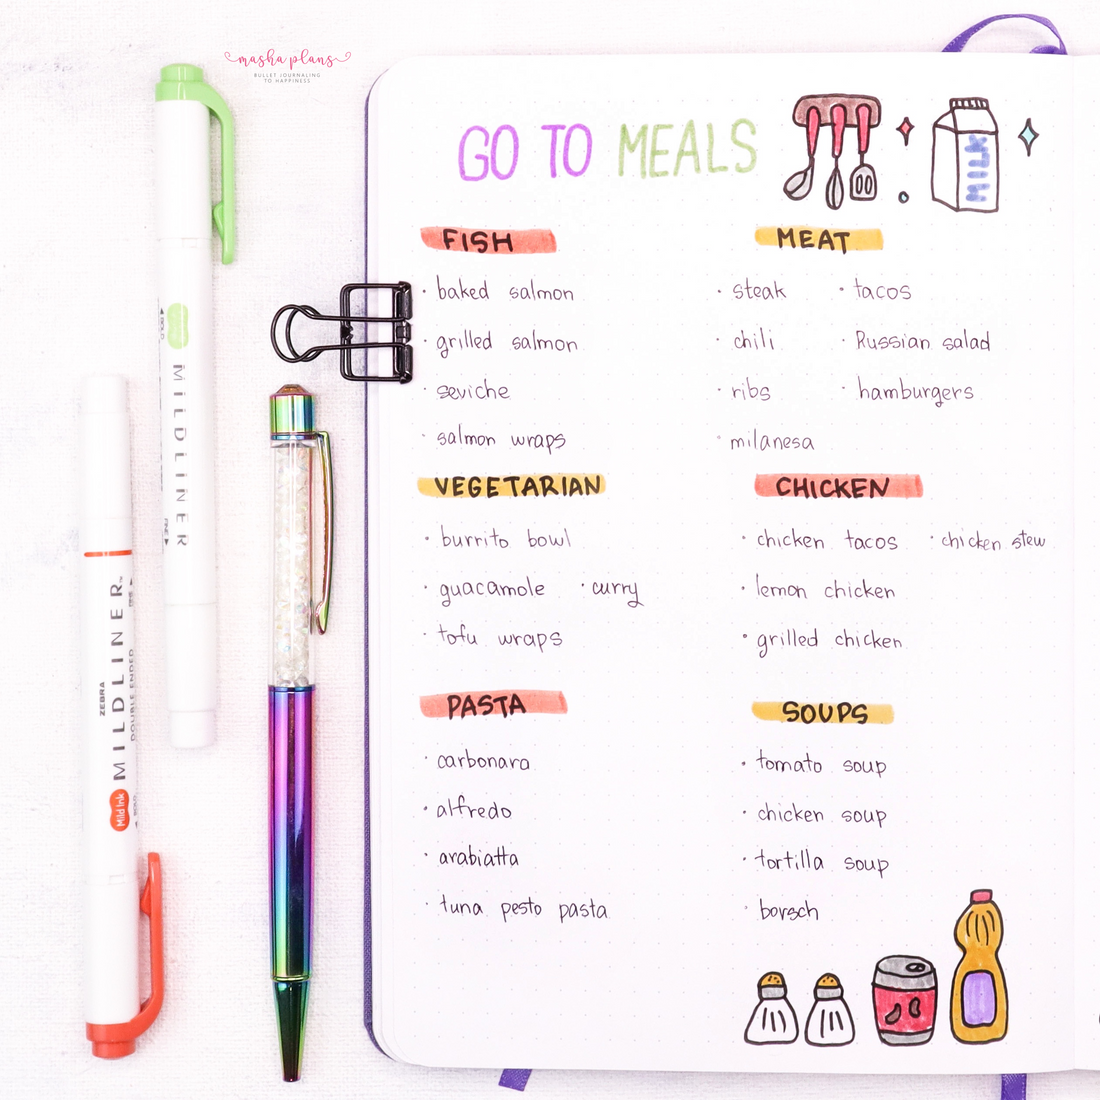 masha plans
BULLET JOURNALING
TO HAPPINESS
GO TO MEALS
MILK
FISH
· baked salmon
· grilled salmon
· seviche
· salmon wraps
MEAT
· steak · tacos
· chili · Russian salad
· ribs · hamburgers
· milanesa
VEGETARIAN
· burrito bowl
· guacamole · curry
· tofu wraps
CHICKEN
· chicken tacos · chicken stew
· lemon chicken
· grilled chicken
PASTA
· carbonara
· alfredo
· arabiatta
· tuna pesto pasta
SOUPS
· tomato soup
· chicken soup
· tortilla soup
· borsch
MILDLINER
ZEBRA
MILDLINER™
DOUBLE ENDED
Mild Ink